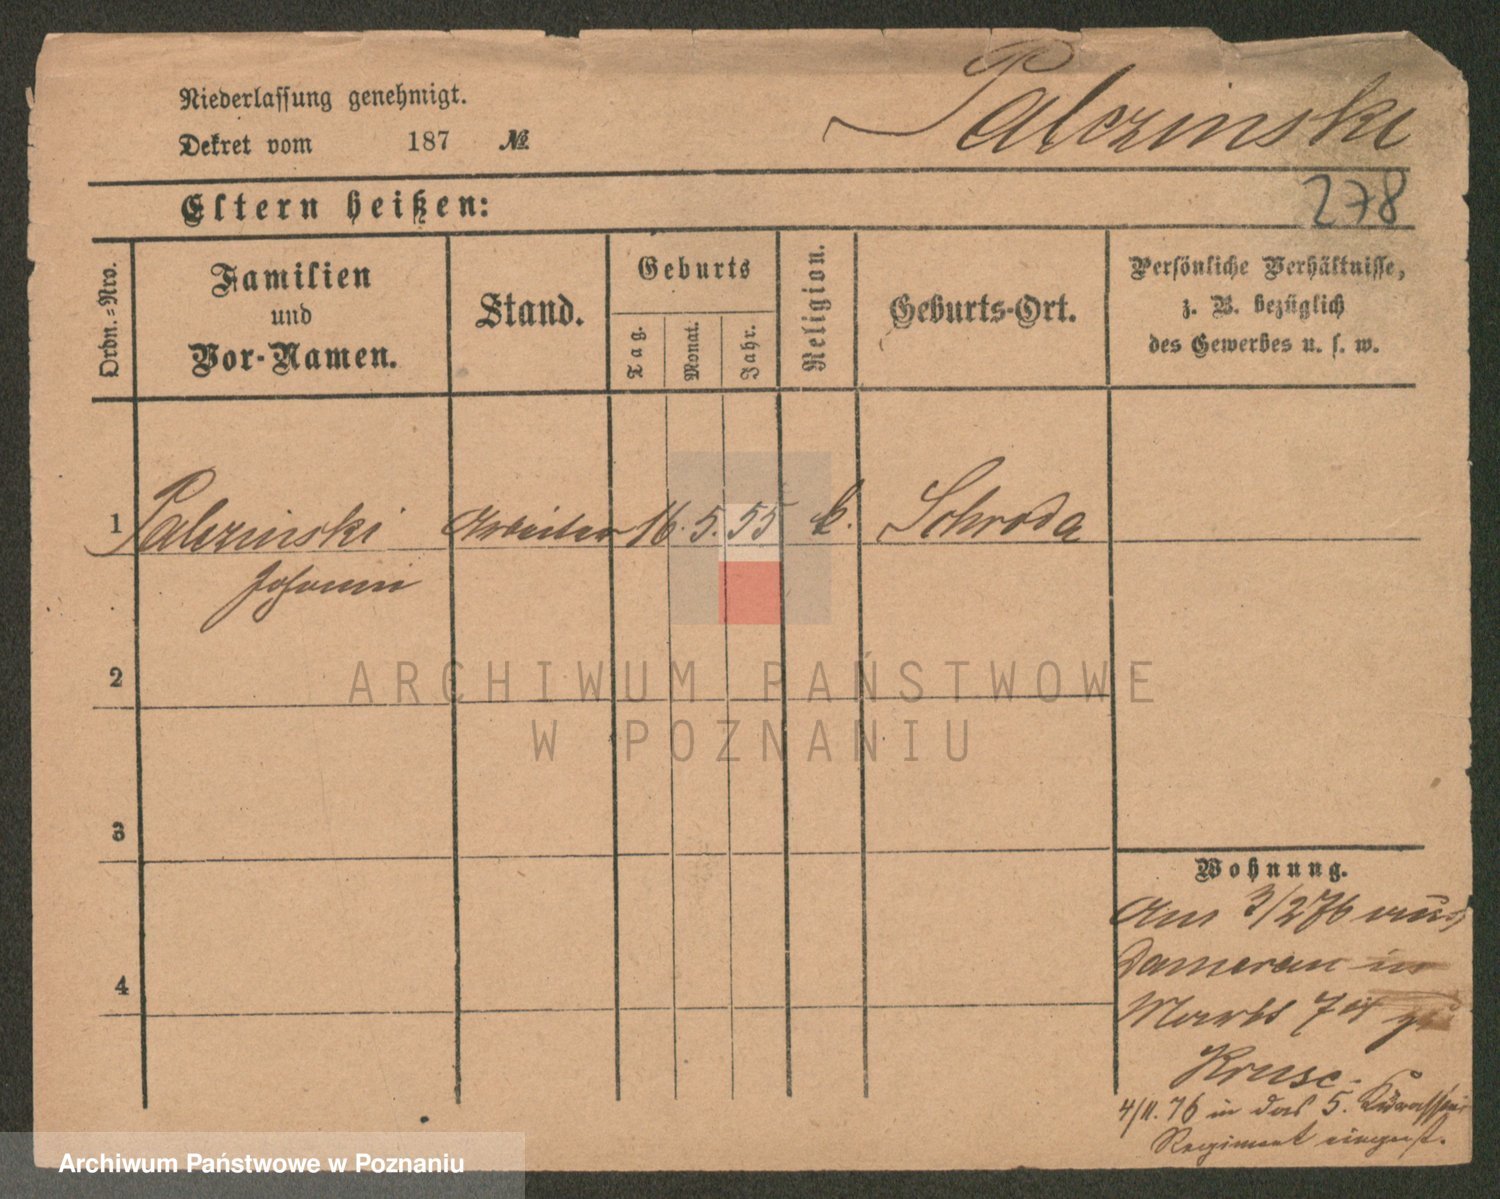 Niederlassung genehmigt.
Dekret vom 187 №
Palczinski
278
Eltern heißen:
Ordn.-Nro.
Familien
und
Vor-Namen.
Stand.
Geburts
Tag.
Monat.
Jahr.
Religion.
Geburts-Ort.
Persönliche Verhältnisse,
z. B. bezüglich
des Gewerbes u. s. w.
1 Palczinski Arbeiter 16. 5. 55 k. Schroda
Johann
2
ARCHIWUM PAŃSTWOWE
W POZNANIU
3
4
Wohnung.
Am 3/2 76 aus
Damerau in
Markt 74 zu
Kruse.
4/11. 76 in das 5. Kürassier
Regiment eingest.
Archiwum Państwowe w Poznaniu